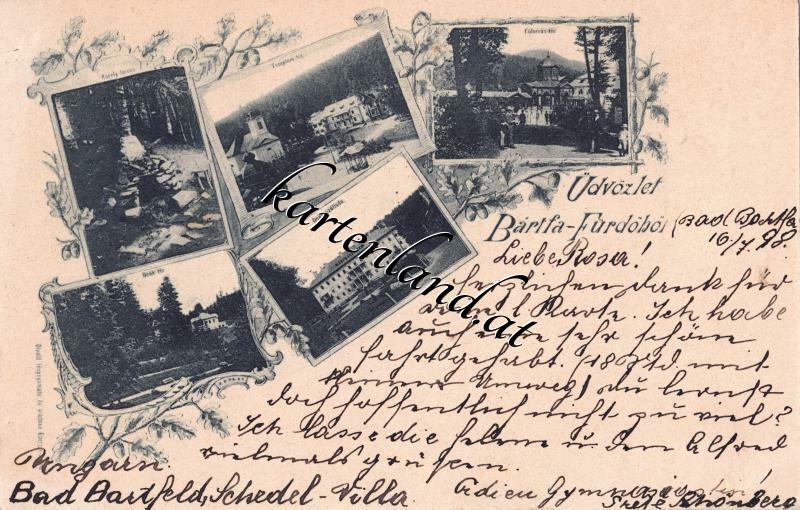 Károly forrás
Templom-tér
Főforrás-tér
Deák tér
Üdvözlet
Bártfa-Fürdőből
(Bad Bartfa
16/7. 98.
Liebe Rosa!
herzlichen dank für
deine l Karte. Ich habe
auch eine sehr schöne
fahrt gehabt. (18 Std. mit
kleinem Umweg) du lernst
doch hoffentlich nicht zu viel?
Ich lasse die helene u. den Alfred
vielmals grüßen.
Adieu
Grete
Ungarn.
Bad Bartfeld, Schedel-Villa
kartenland.at